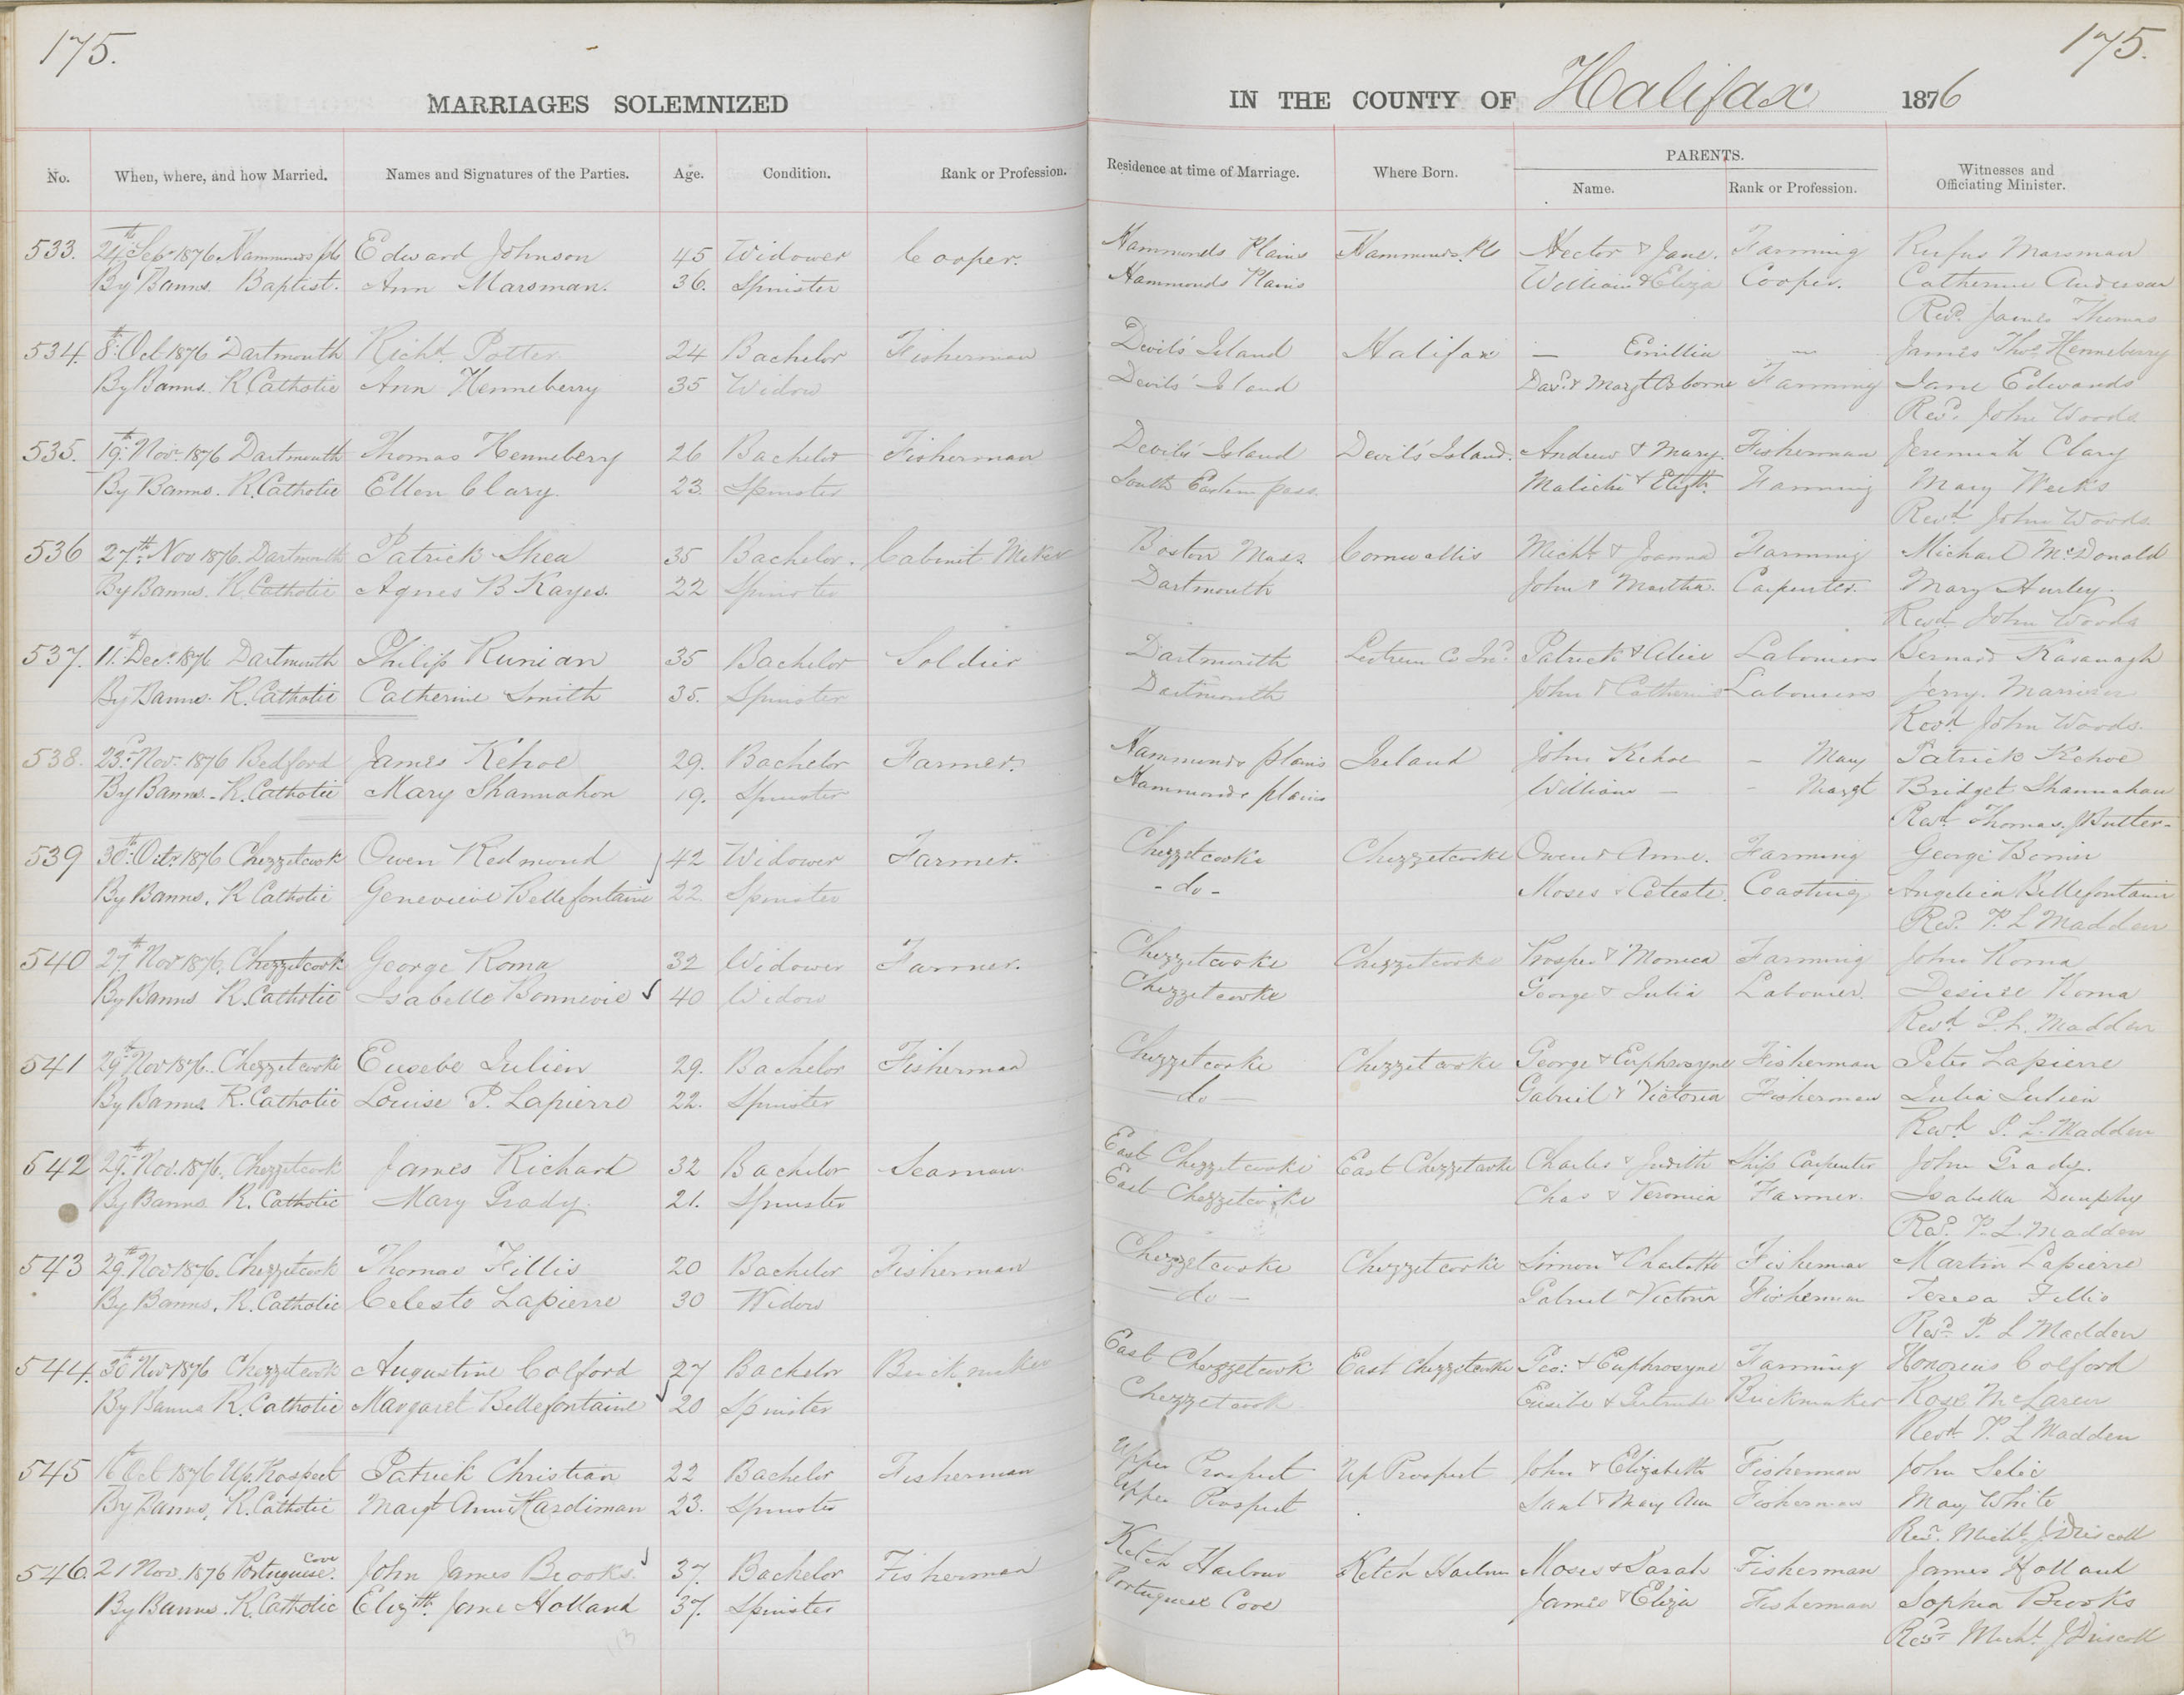 175.
175.
MARRIAGES SOLEMNIZED IN THE COUNTY OF Halifax 1876
No. When, where, and how Married. Names and Signatures of the Parties. Age. Condition. Rank or Profession. Residence at time of Marriage. Where Born. PARENTS. Name. Rank or Profession. Witnesses and Officiating Minister.
533. 24th Sep. 1876 Hammonds pls Edward Johnson 45 Widower Cooper. Hammonds Plains Hammonds. Pls Hector & Jane. Farming Rufus Marsman
By Banns Baptist. Ann Marsman. 36. Spinster Hammonds Plains William & Eliza Cooper. Catherine Anderson
Revd. James Thomas
534. 8th Oct 1876 Dartmouth Richd. Potter 24 Bachelor Fisherman Devils' Island Halifax — Emillia — James Thos. Henneberry
By Banns. R. Catholic Ann Henneberry 35 Widow Devils' Island Davd. & Margt Osborne Farming Jane Edwards
Revd. John Woods
535. 19th Nov. 1876 Dartmouth Thomas Henneberry 26 Bachelor Fisherman Devils' Island Devils' Island. Andrew & Mary. Fisherman Jeremiah Clary
By Banns. R. Catholic Ellen Clary. 23. Spinster South Eastern pass. Malichi & Elizth. Farming Mary Weeks
Revd. John Woods.
536 27th Nov 1876. Dartmouth Patrick Shea 35 Bachelor. Cabinet Maker Boston Mass. Cornwallis Michl. & Joanna Farming Michael McDonald
By Banns. R. Catholic Agnes B Kayes. 22 Spinster Dartmouth John & Martha. Carpenter. Mary Hurley.
Revd John Woods
537. 11th Decr. 1876 Dartmouth Philip Runian 35 Bachelor Soldier Dartmouth Leitrem Co Ird. Patrick & Alice Labourers Bernard Kavanagh
By Banns. R. Catholic Catherine Smith 35. Spinster Dartmouth John & Catherine Labourers Jerry.
Revd. John Woods.
538. 23d. Nov. 1876 Bedford James Kehoe 29. Bachelor Farmer. Hammonds plains Ireland John Kehoe – Mary Patrick Kehoe
By Banns. R. Catholic Mary Shannahon 19. Spinster Hammonds plains William — - Margt Bridget Shannahan
Revd. Thomas. Butler-
539 30th Octr. 1876 Chezzetcook Owen Redmond 42 Widower Farmer. Chezzetcooke Chezzetcooke Owen & Anne. Farming George Bonin
By Banns. R Catholic Genevieve Bellefontaine 22. Spinster - do - Moses & Celeste. Coasting Angelica Bellefontaine
Revd. P. L Madden
540 27th Nov 1876, Chezzetcook George Roma 32 Widower Farmer. Chezzetcooke Chezzetcooke Prosper & Monica Farming John Roma
By Banns R. Catholic Isabelle Bonnevie 40 Widow Chezzetcooke George & Julia Labourer. Desiree Roma
Revd. P. L. Madden
541 29th Nov 1876. Chezzetcooke Eusebe Julien 29. Bachelor Fisherman Chezzetcooke Chezzetcooke George & Euphrosyne Fisherman Peter Lapierre
By Banns. R. Catholic Louise P. Lapierre 22. Spinster — do — Gabriel & Victoria Fisherman Julia Julien
Revd. P. L. Madden
542 29th Nov. 1876. Chezzetcook James Richard 32 Bachelor Seaman East Chezzetcooke East Chezzetcooke Charles & Judith Ship Carpenter John Grady.
By Banns R. Catholic Mary Grady. 21. Spinster East Chezzetcooke Chas & Veronica Farmer. Isabella Dunphy
Revd. P. L. Madden
543 29th Nov 1876. Chezzetcook Thomas Fillis 20 Bachelor Fisherman Chezzetcooke Chezzetcooke Simon & Charlotte Fisherman Martin Lapierre
By Banns. R. Catholic Celeste Lapierre 30 Widow — do — Gabriel & Victoria Fisherman Teresa Fillis
Revd. P. L Madden
544. 30th Nov 1876 Chezzetcook Augustine Colford 27 Bachelor Brickmaker East Chezzetcook East Chezzetcooke Geo: & Euphrosyne Farming Honorius Colford
By Banns R. Catholic Margaret Bellefontaine 20 Spinster Chezzetcook Eusibe & Gertrude Brickmaker Rose McLaren
Revd. P. L Madden
545 16th Oct 1876 Up. Prospect Patrick Christian 22 Bachelor Fisherman Upper Prospect Up Prospect John & Elizabeth Fisherman John Selie
By Banns, R. Catholic Margt Ann Hardiman 23. Spinster Upper Prospect Saml & Mary Ann Fisherman May White
Revd. Michl. J Driscoll
546. 21 Nov. 1876 Portuguese Cove John James Brooks. 37. Bachelor Fisherman Ketch Harbour Ketch Harbour Moses & Sarah Fisherman James Holland
By Banns. R. Catholic Elizth. Jane Holland 37. Spinster Portuguese Cove James & Eliza Fisherman Sophia Brooks
Revd. Michl. J Driscoll